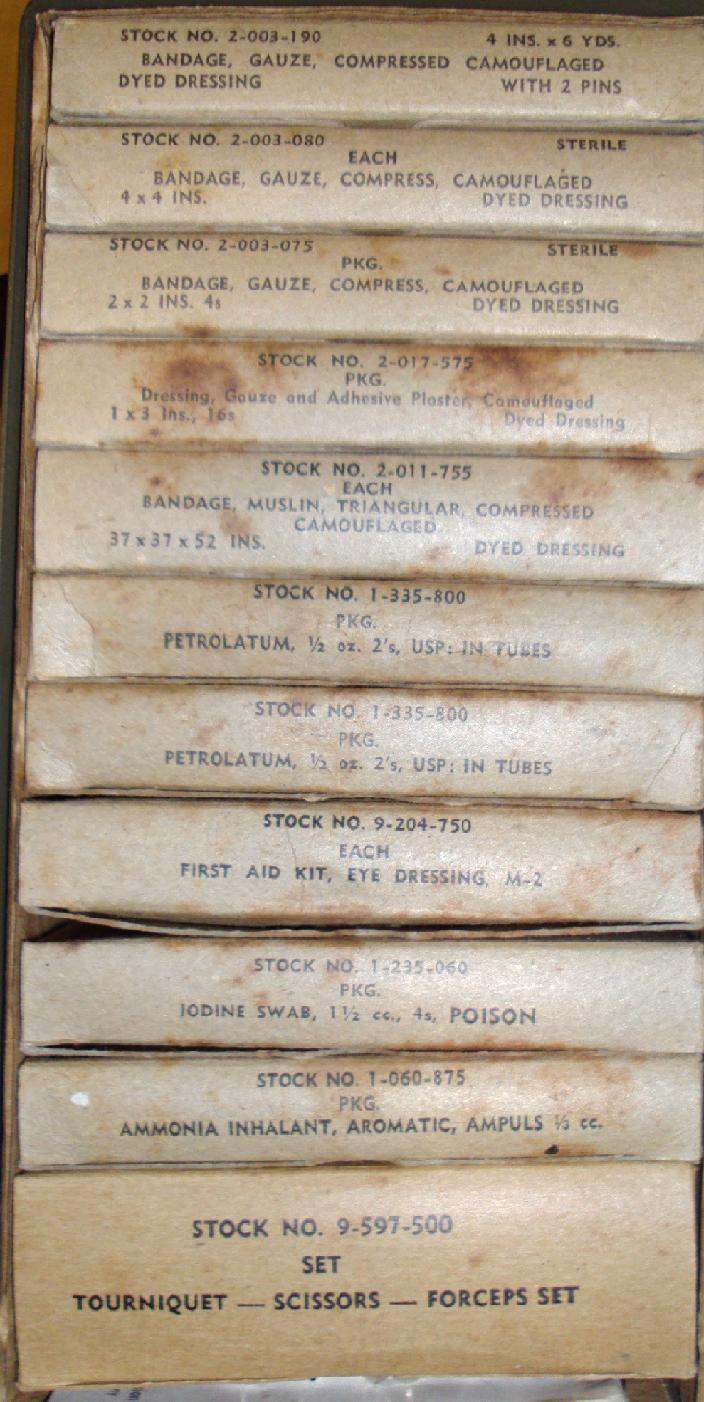 STOCK NO. 2-003-190 4 INS. x 6 YDS.
BANDAGE, GAUZE, COMPRESSED CAMOUFLAGED
DYED DRESSING WITH 2 PINS
STOCK NO. 2-003-080 STERILE
EACH
BANDAGE, GAUZE, COMPRESS, CAMOUFLAGED
4 x 4 INS. DYED DRESSING
STOCK NO. 2-003-075 STERILE
PKG.
BANDAGE, GAUZE, COMPRESS, CAMOUFLAGED
2 x 2 INS. 4s DYED DRESSING
STOCK NO. 2-017-575
PKG.
Dressing, Gauze and Adhesive Plaster, Camouflaged
1 x 3 Ins., 16s Dyed Dressing
STOCK NO. 2-011-755
EACH
BANDAGE, MUSLIN, TRIANGULAR, COMPRESSED
CAMOUFLAGED
37 x 37 x 52 INS. DYED DRESSING
STOCK NO. 1-335-800
PKG.
PETROLATUM, ½ oz. 2's, USP: IN TUBES
STOCK NO. 1-335-800
PKG.
PETROLATUM, ½ oz. 2's, USP: IN TUBES
STOCK NO. 9-204-750
EACH
FIRST AID KIT, EYE DRESSING, M-2
STOCK NO. 1-235-060
PKG.
IODINE SWAB, 1½ cc., 4s, POISON
STOCK NO. 1-060-875
PKG.
AMMONIA INHALANT, AROMATIC, AMPULS ⅓ cc.
STOCK NO. 9-597-500
SET
TOURNIQUET — SCISSORS — FORCEPS SET